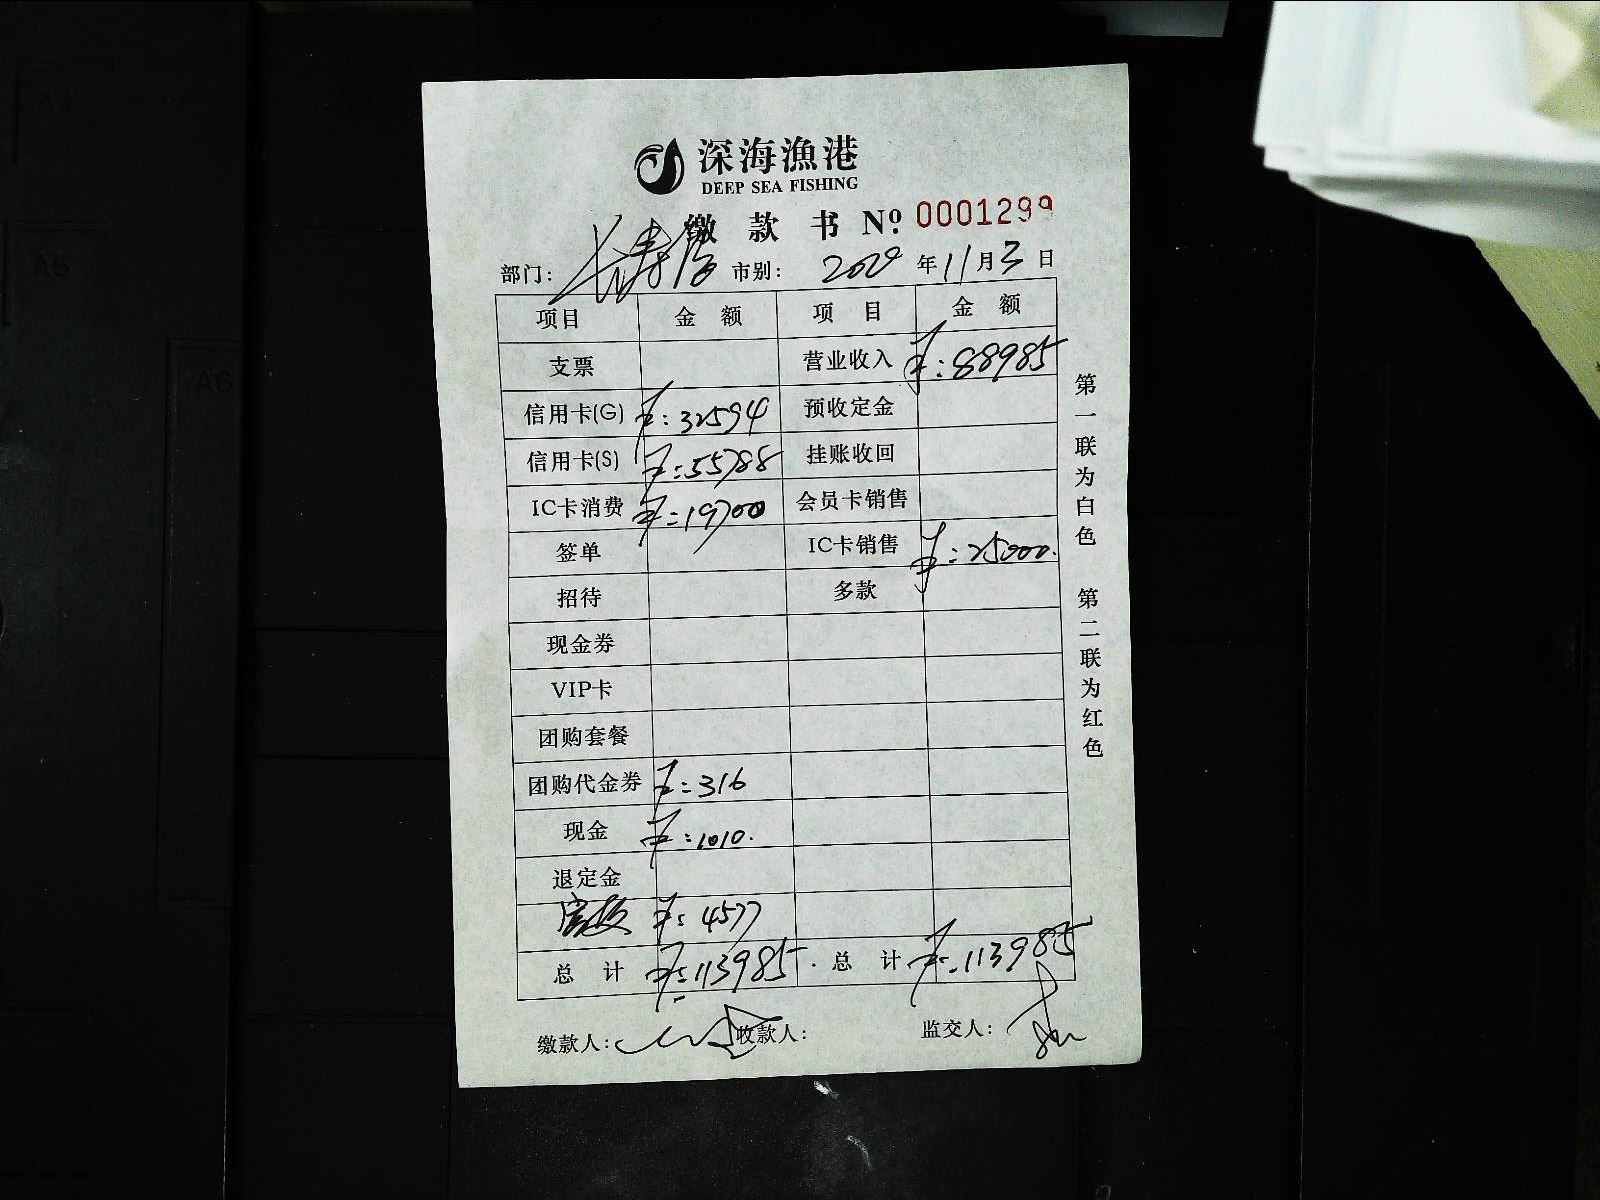 深海漁港
DEEP SEA FISHING
缴款书 Nº: 0001299
部门： 市别： 2020年11月3日
项目 金额 项目 金额
支票 营业收入 ¥:88985
信用卡(G) ¥:32594 预收定金
信用卡(S) ¥:55788 挂账收回
IC卡消费 ¥:19700 会员卡销售
签单 IC卡销售 ¥:25000.
招待 多款
现金券
VIP卡
团购套餐
团购代金券 ¥:316
现金 ¥:1010.
退定金
¥:4577
总计 ¥:113985. 总计 ¥:113985
缴款人： 收款人： 监交人：
第一联为白色 第二联为红色